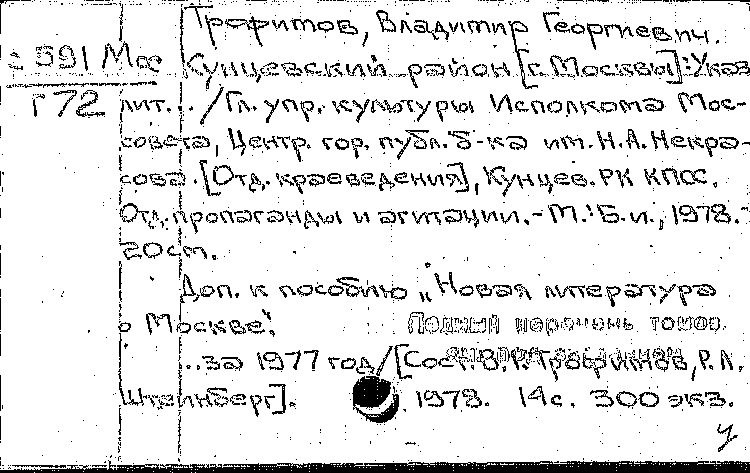 Трофимов, Владимир Георгиевич.
591 Мос Кунцевский район [г. Москвы]: Указ.
Г72 лит... / Гл. упр. культуры Исполкома Мос-
совета, Центр. гор. публ. б-ка им. Н.А. Некра-
сова. [Отд. краеведения], Кунцев. РК КПСС.
Отд. пропаганды и агитации. - М.: Б.и., 1978. -
20см.
Доп. к пособию „Новая литература
о Москве".
Полный перечень томов
...за 1977 год / [Сост. В.Г. Трофимов, Р.Л.
Штейнберг]. 1978. 14с. 300 экз.